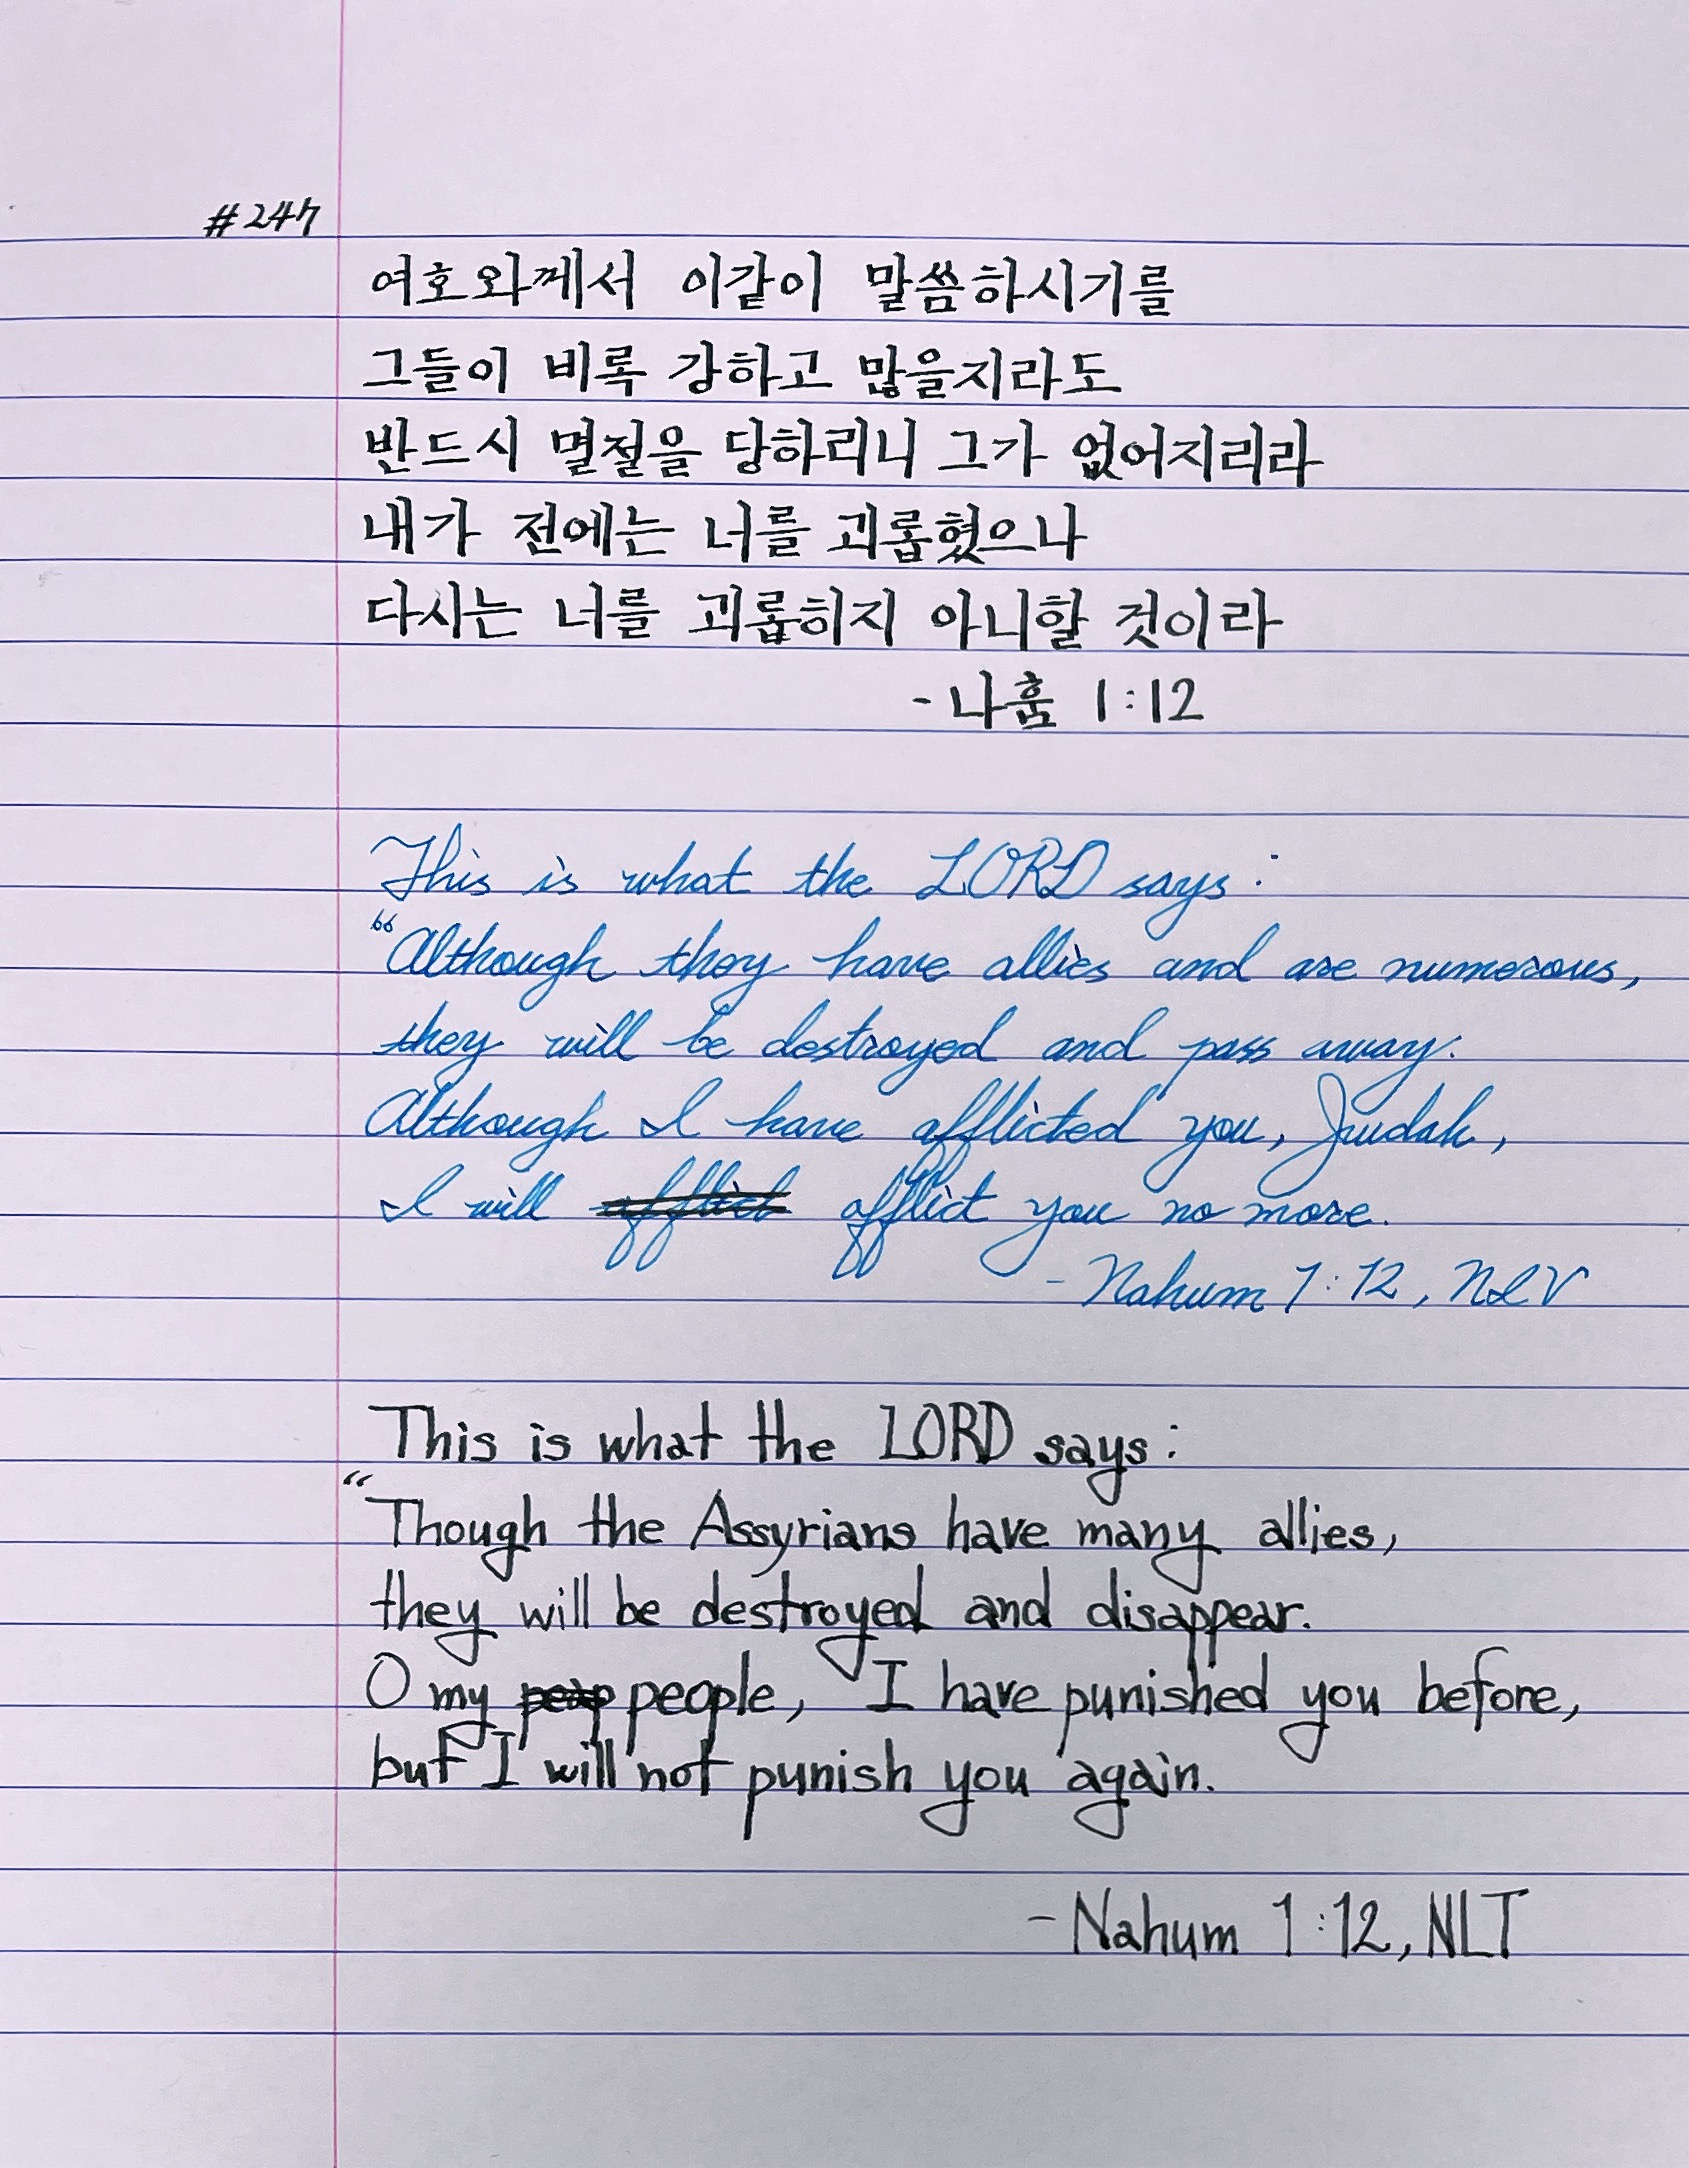 #247
여호와께서 이같이 말씀하시기를
그들이 비록 강하고 많을지라도
반드시 멸절을 당하리니 그가 없어지리라
내가 전에는 너를 괴롭혔으나
다시는 너를 괴롭히지 아니할 것이라
-나훔 1:12
This is what the LORD says:
“Although they have allies and are numerous,
they will be destroyed and pass away.
Although I have afflicted you, Judah,
I will afflict afflict you no more.
- Nahum 1:12, NLV
This is what the LORD says:
“Though the Assyrians have many allies,
they will be destroyed and disappear.
O my peop people, I have punished you before,
but I will not punish you again.
- Nahum 1:12, NLT